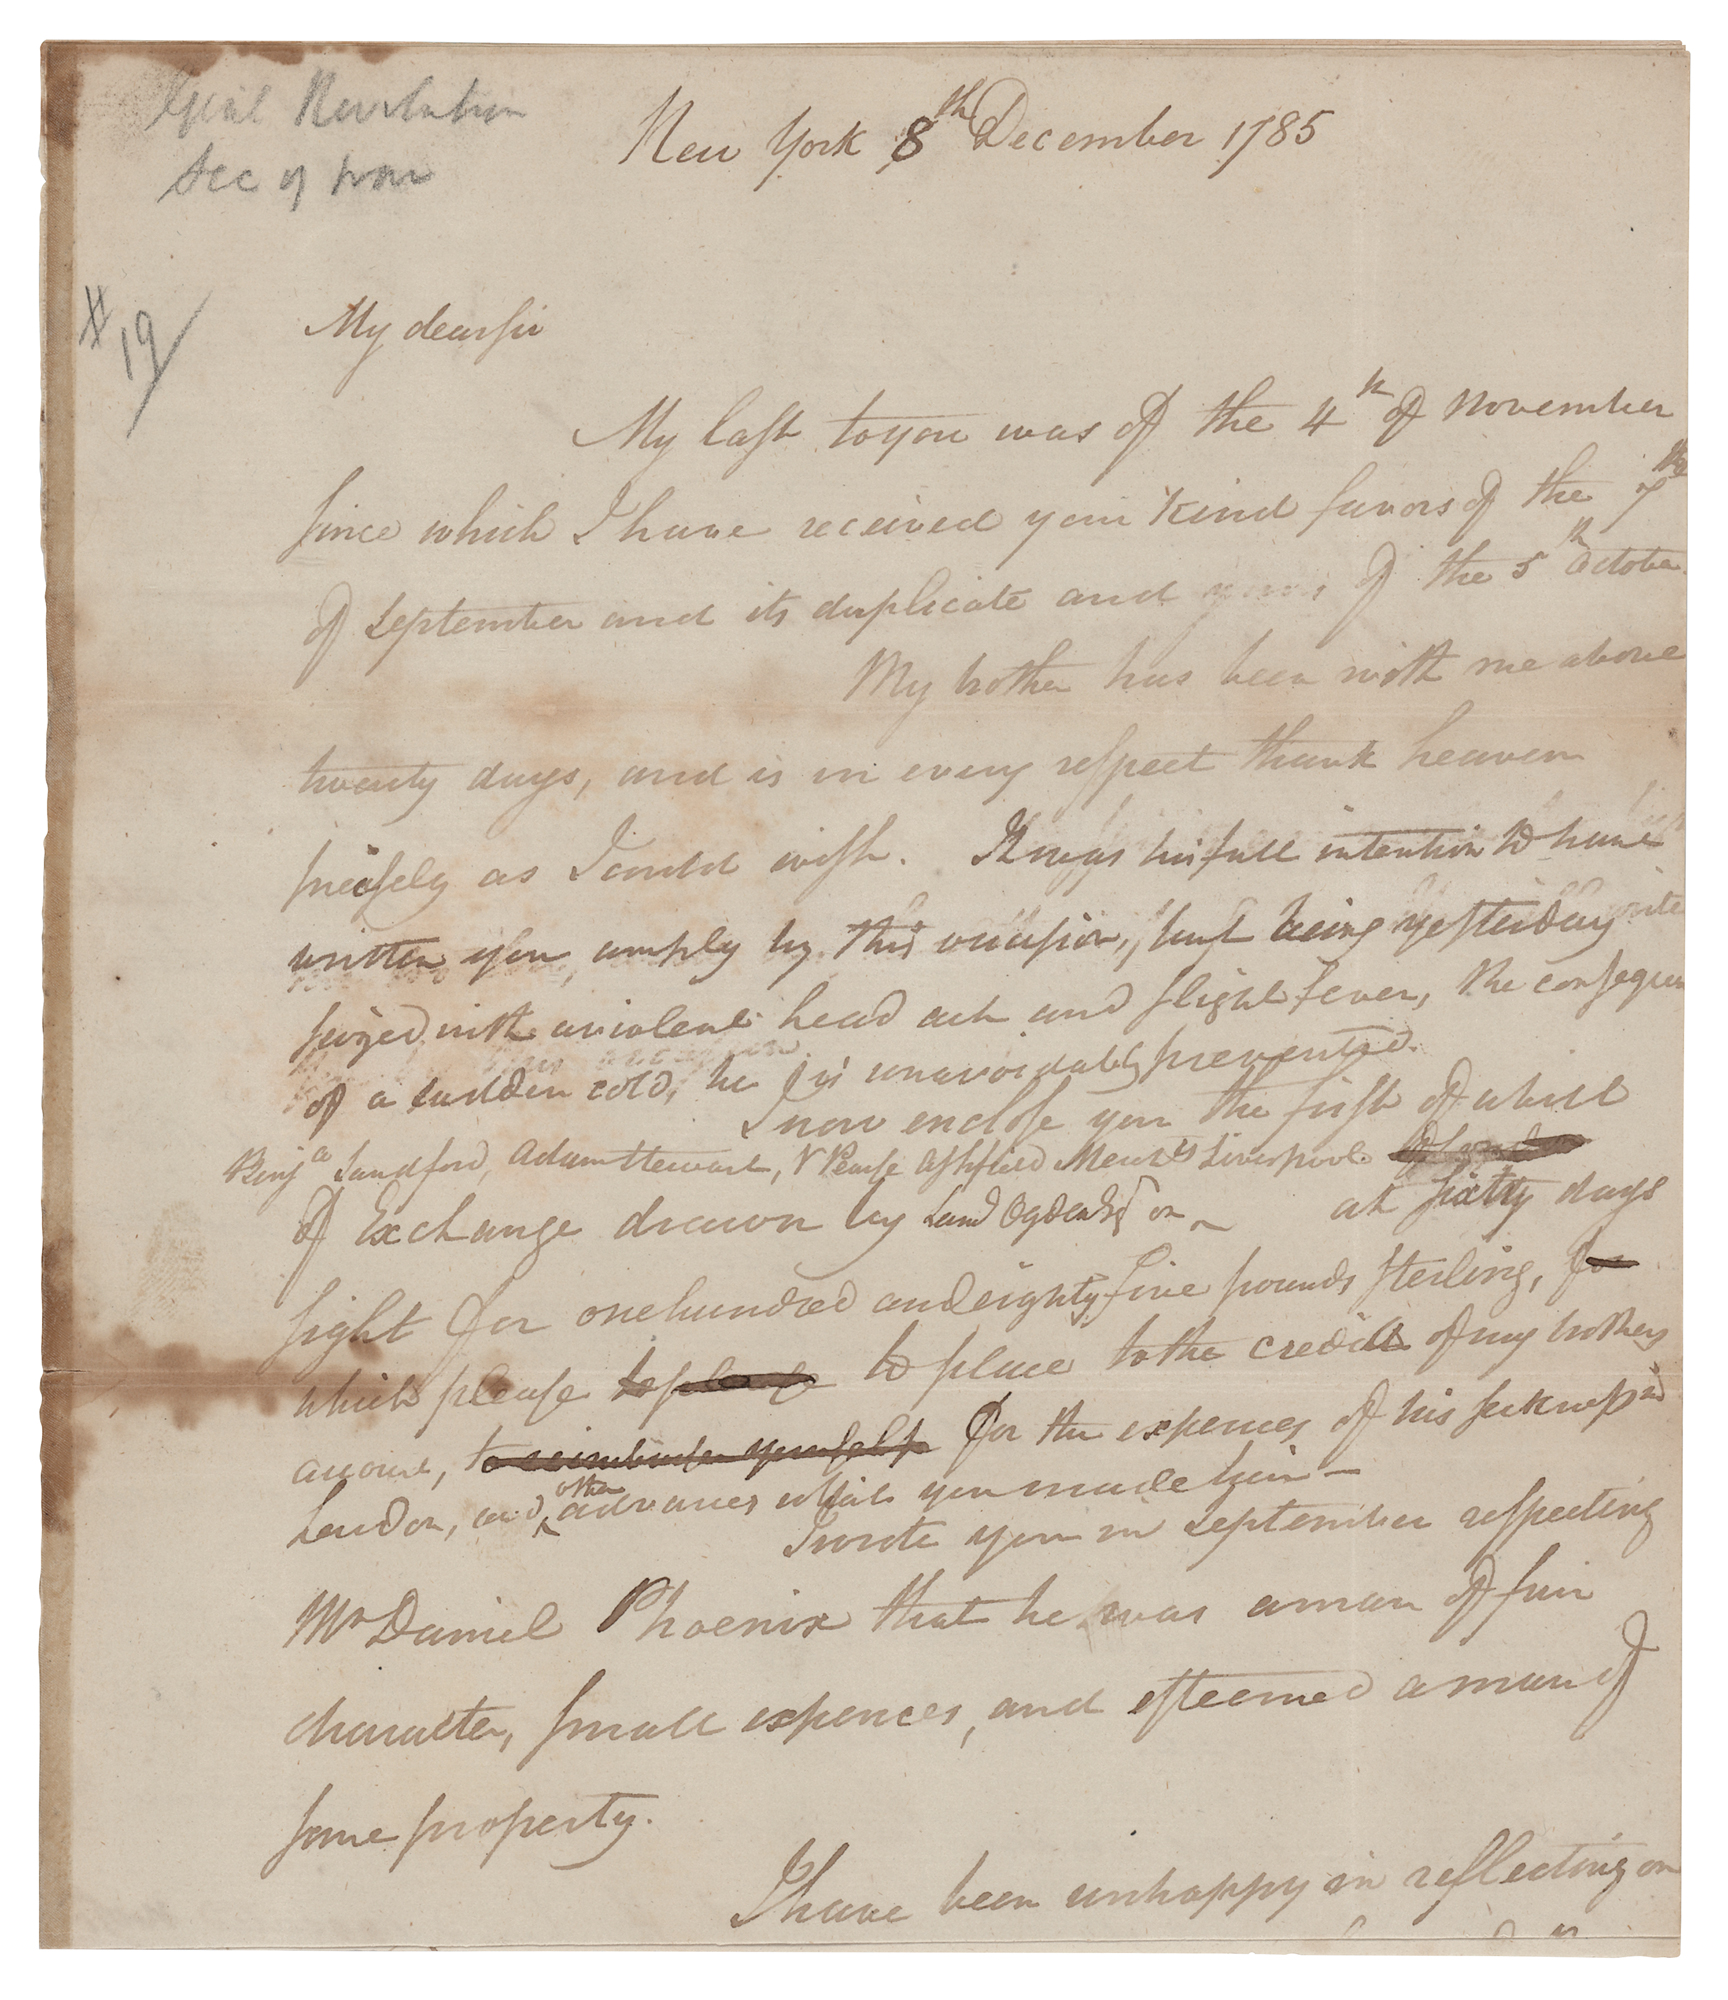 Genl Revolution
Sec of War
# 19/
New York 8th December 1785
My dear sir
My last to you was of the 4th of November
since which I have received your kind favors of the 7th
of September and its duplicate and yours of the 5th October.
My brother has been with me above
twenty days, and is in every respect thank heaven
precisely as I could wish. It was his full intention to have
written you amply by this occasion, but being yesterday
seized with a violent head ach and slight fever, the consequen
of a sudden cold, he is unavoidably prevented.
I now enclose you the first of a bill
Benja Sandford, Adam Stewart, & Pearse Ashfield Merchts Liverpool
of Exchange drawn by on at sixty days
sight for one hundred and eighty five pounds sterling, for
which please to please to place to the credit of my brothers
account, to reimburse yourself for the expences of his sickness in
London, and other advances which you made him —
I wrote you in September respecting
Mr Daniel Phoenix that he was a man of fair
character, small expences, and esteemed a man of
some property.
I have been unhappy in reflecting on